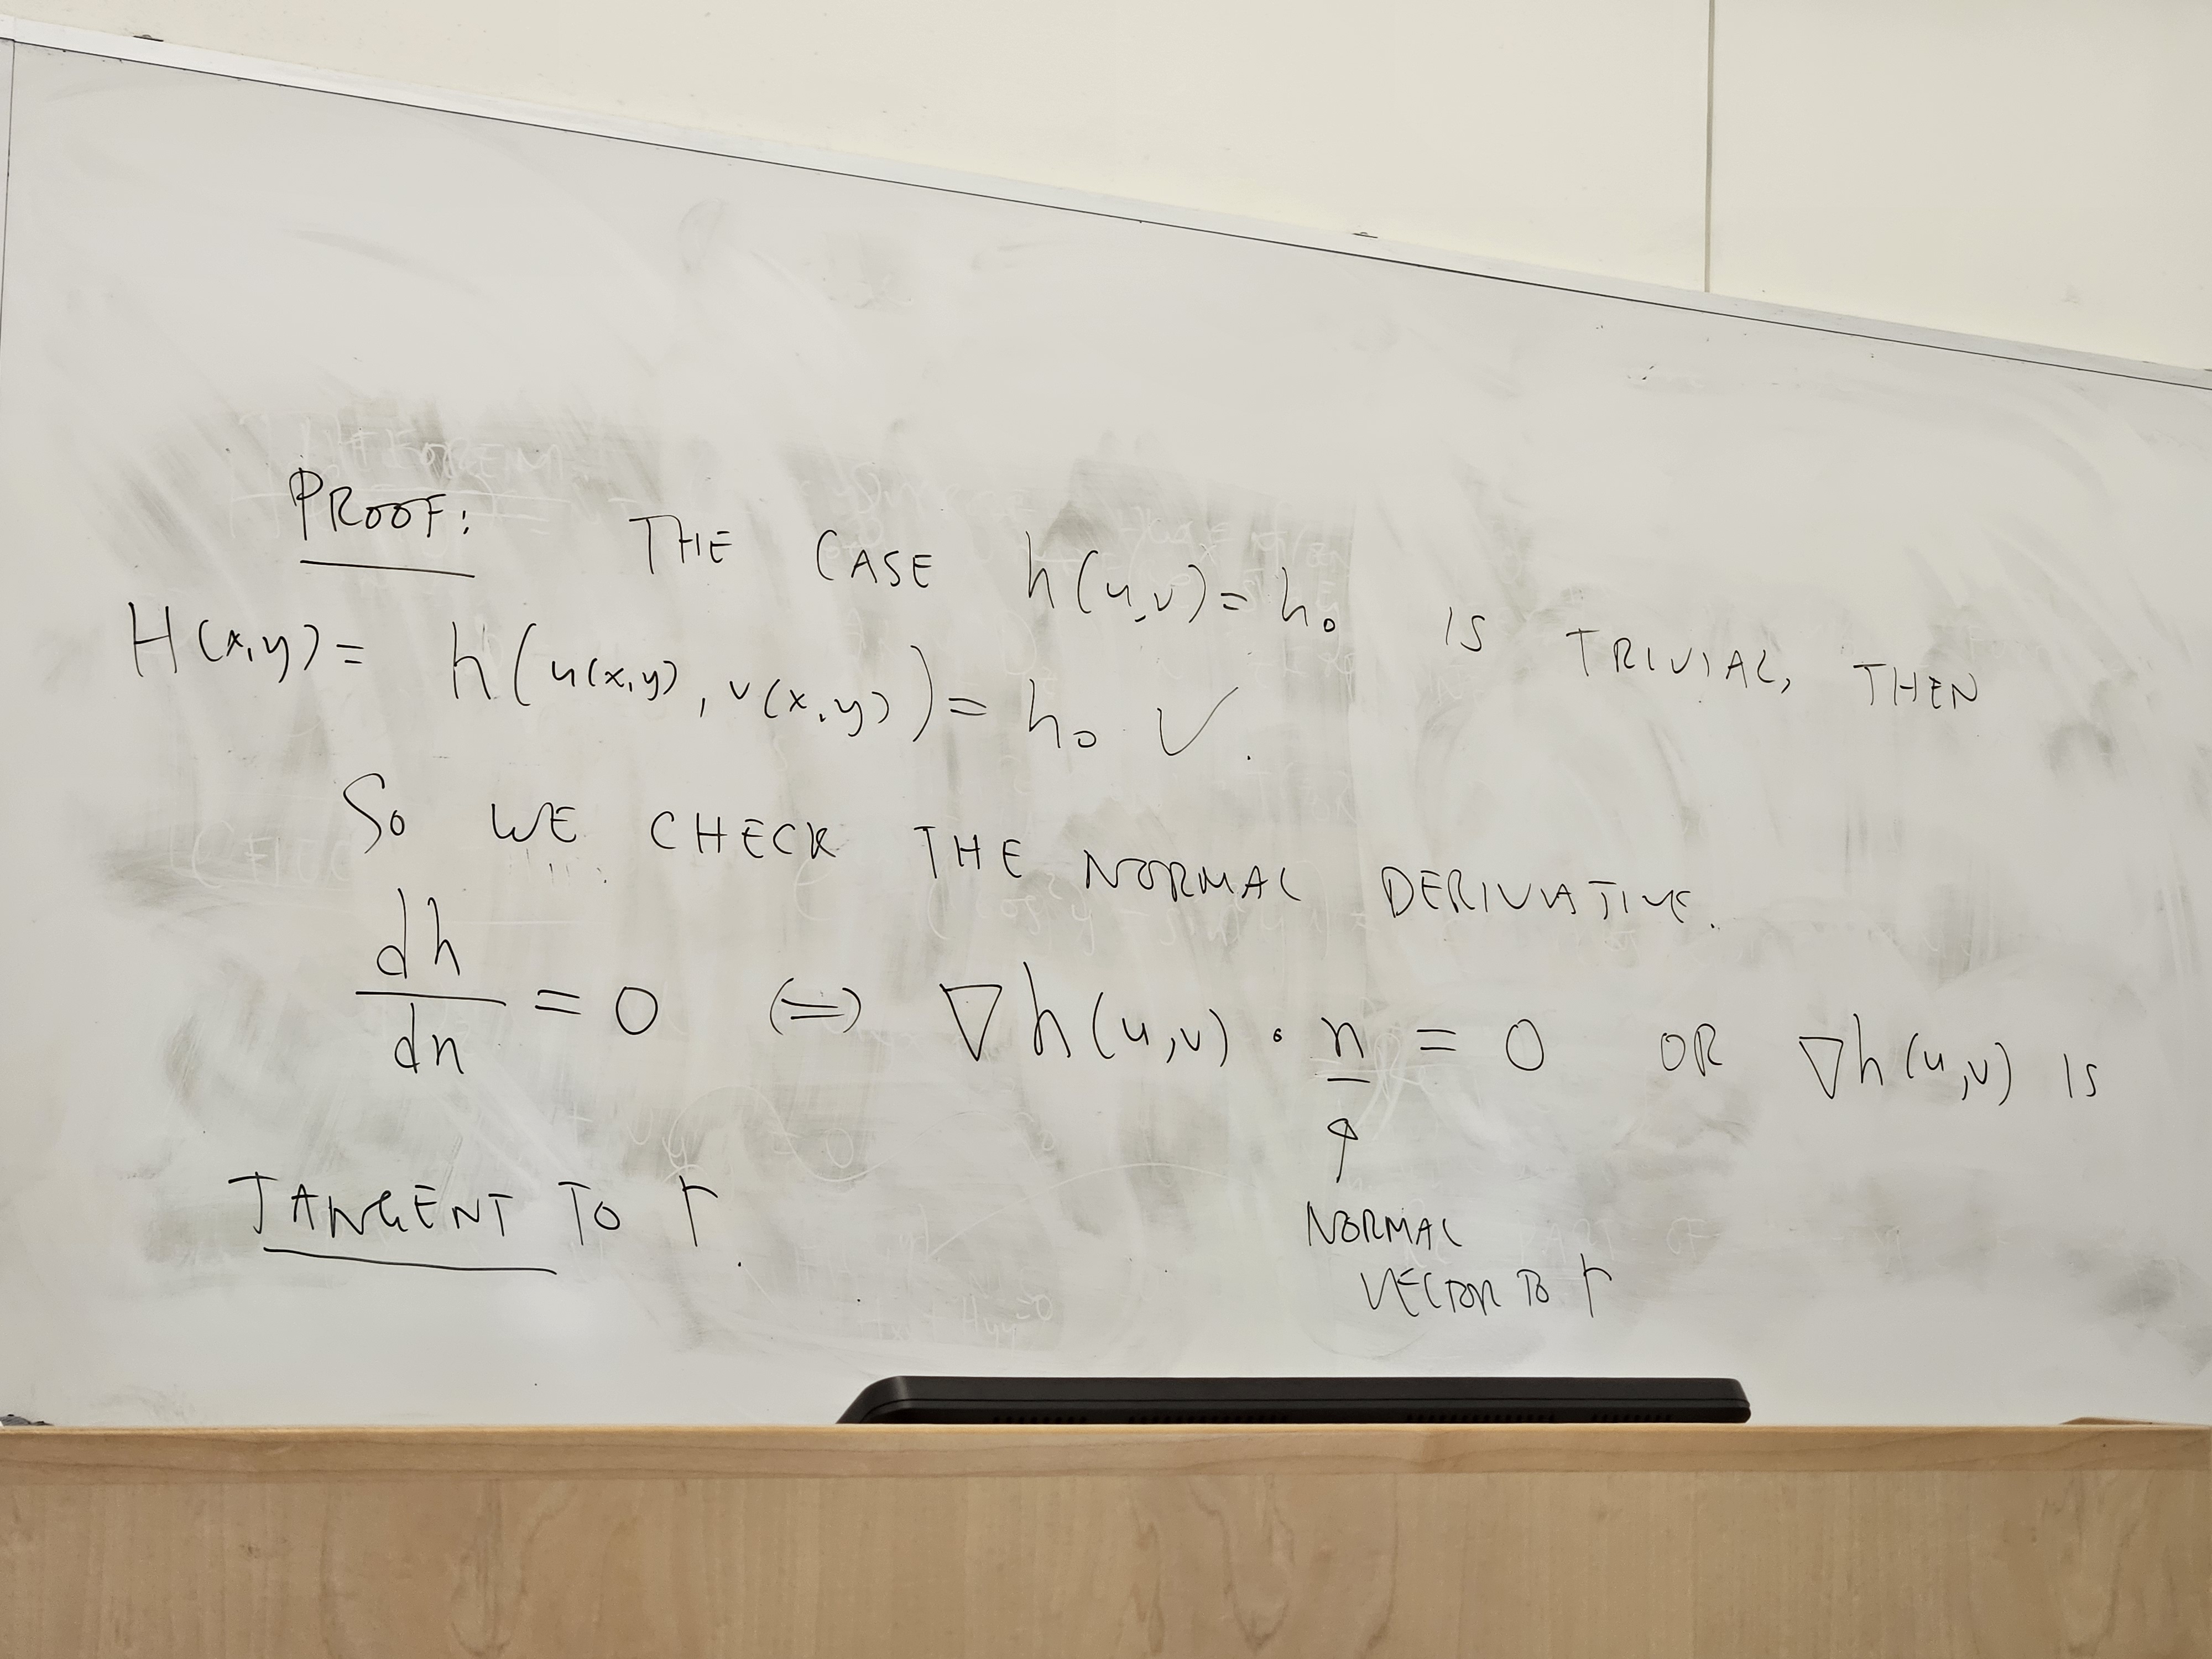 PROOF: THE CASE h(u,v) = h₀ IS TRIVIAL, THEN
H(x,y) = h(u(x,y), v(x,y)) = h₀ ✓.
SO WE CHECK THE NORMAL DERIVATIVE.
dh/dn = 0 (=) ∇h(u,v) · n = 0 OR ∇h(u,v) IS
↑
NORMAL
VECTOR TO Γ
TANGENT TO Γ.